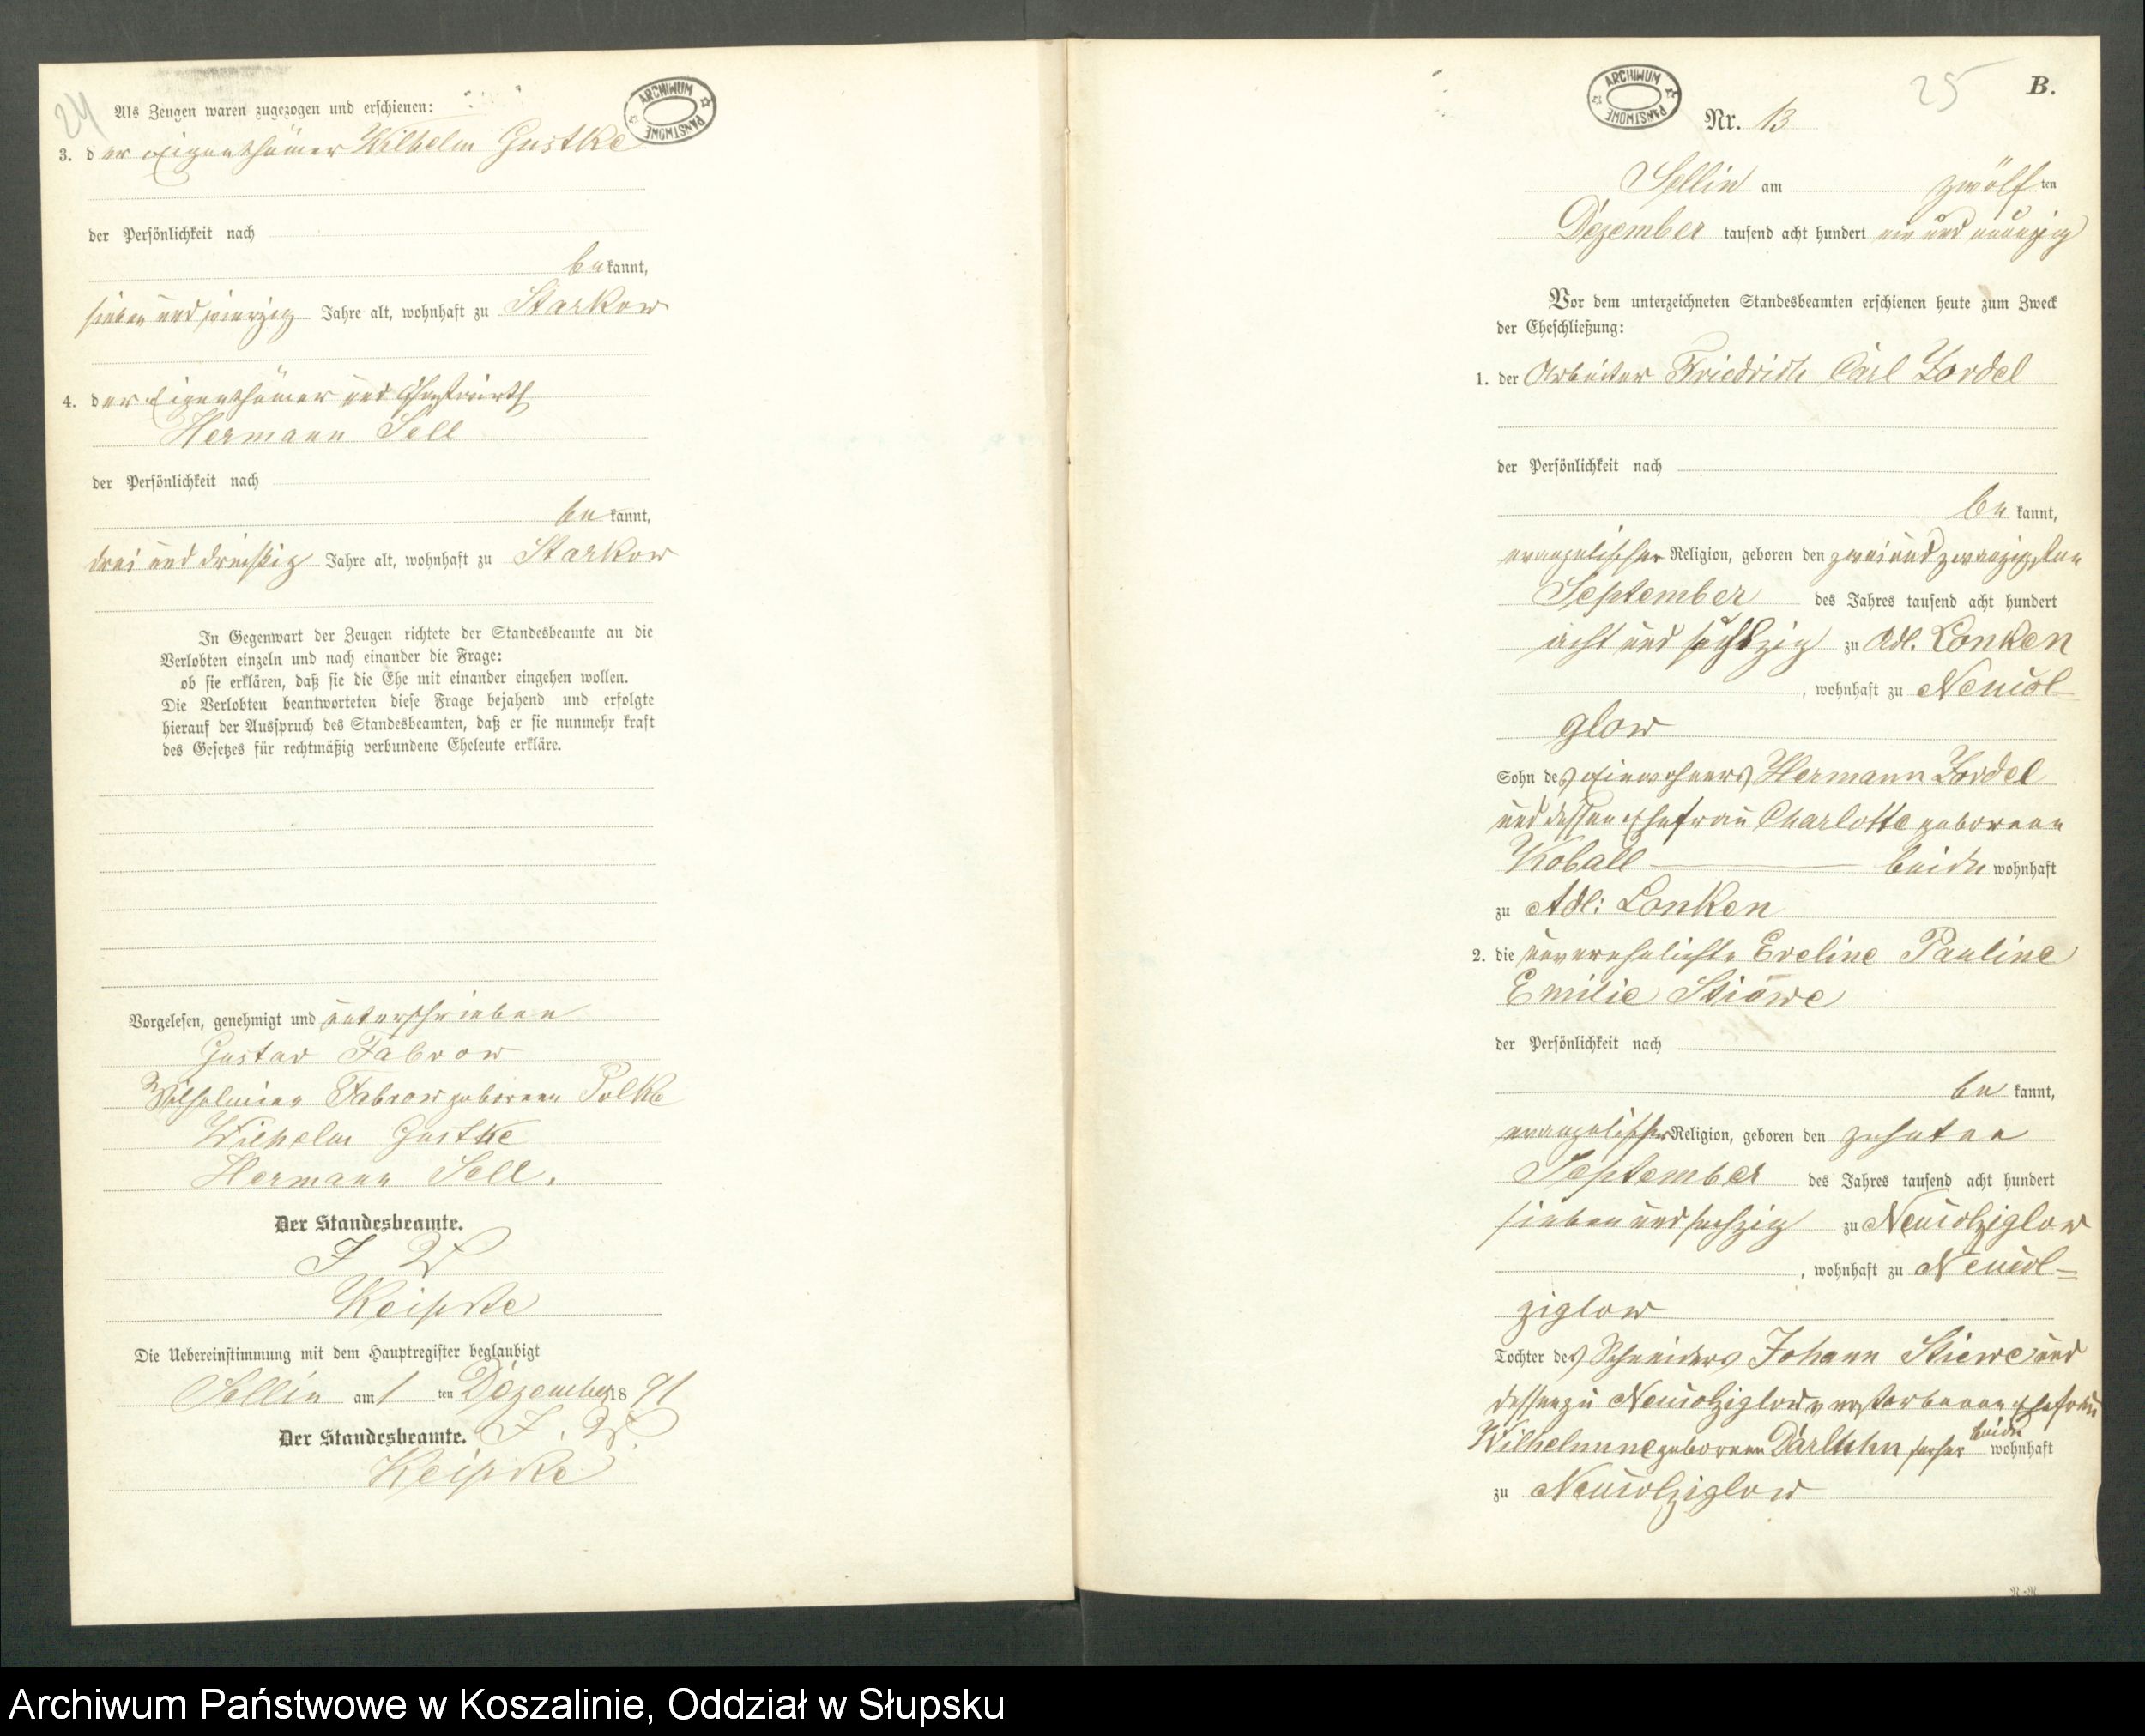 24
ARCHIWUM PAŃSTWOWE
Als Zeugen waren zugezogen und erschienen:
3. der Eigenthümer Wilhelm Gustke
der Persönlichkeit nach
bekannt,
sieben und vierzig Jahre alt, wohnhaft zu Starkow
4. der Eigenthümer und Gastwirth
Hermann Sell
der Persönlichkeit nach
bekannt,
drei und dreißig Jahre alt, wohnhaft zu Starkow
In Gegenwart der Zeugen richtete der Standesbeamte an die
Verlobten einzeln und nach einander die Frage:
ob sie erklären, daß sie die Ehe mit einander eingehen wollen.
Die Verlobten beantworteten diese Frage bejahend und erfolgte
hierauf der Ausspruch des Standesbeamten, daß er sie nunmehr kraft
des Gesetzes für rechtmäßig verbundene Eheleute erkläre.
Vorgelesen, genehmigt und unterschrieben
Gustav Fabrow
Wilhelmine Fabrow geborene Polke
Wilhelm Gustke
Hermann Sell.
Der Standesbeamte.
J V
Keipke
Die Uebereinstimmung mit dem Hauptregister beglaubigt
Sellin am 1 ten Dezember 18 91
Der Standesbeamte. J. V.
Keipke
ARCHIWUM PAŃSTWOWE
25
B.
Nr. 13
Sellin am zwölf ten
Dezember tausend acht hundert ein und neunzig
Vor dem unterzeichneten Standesbeamten erschienen heute zum Zweck
der Eheschließung:
1. der Arbeiter Friedrich Carl Zordel
der Persönlichkeit nach
be kannt,
evangelischer Religion, geboren den zwei und zwanzigsten
September des Jahres tausend acht hundert
acht und sechszig zu Adl. Lonken
, wohnhaft zu Neuwol-
glow
Sohn des Einwohners Hermann Zordel
und dessen Ehefrau Charlotte geborene
Koball beide wohnhaft
zu Adl: Lonken
2. die unverehelichte Eveline Pauline
Emilie Stiewe
der Persönlichkeit nach
be kannt,
evangelischer Religion, geboren den zehnten
September des Jahres tausend acht hundert
sieben und sechzig zu Neuwolziglow
, wohnhaft zu Neuwol=
ziglow
Tochter des Schneiders Johann Stiewe und
dessen zu Neuwolziglow verstorbenen Ehefrau
Wilhelmine geborene wohnhaft
beide
zu Neuwolziglow
Archiwum Państwowe w Koszalinie, Oddział w Słupsku